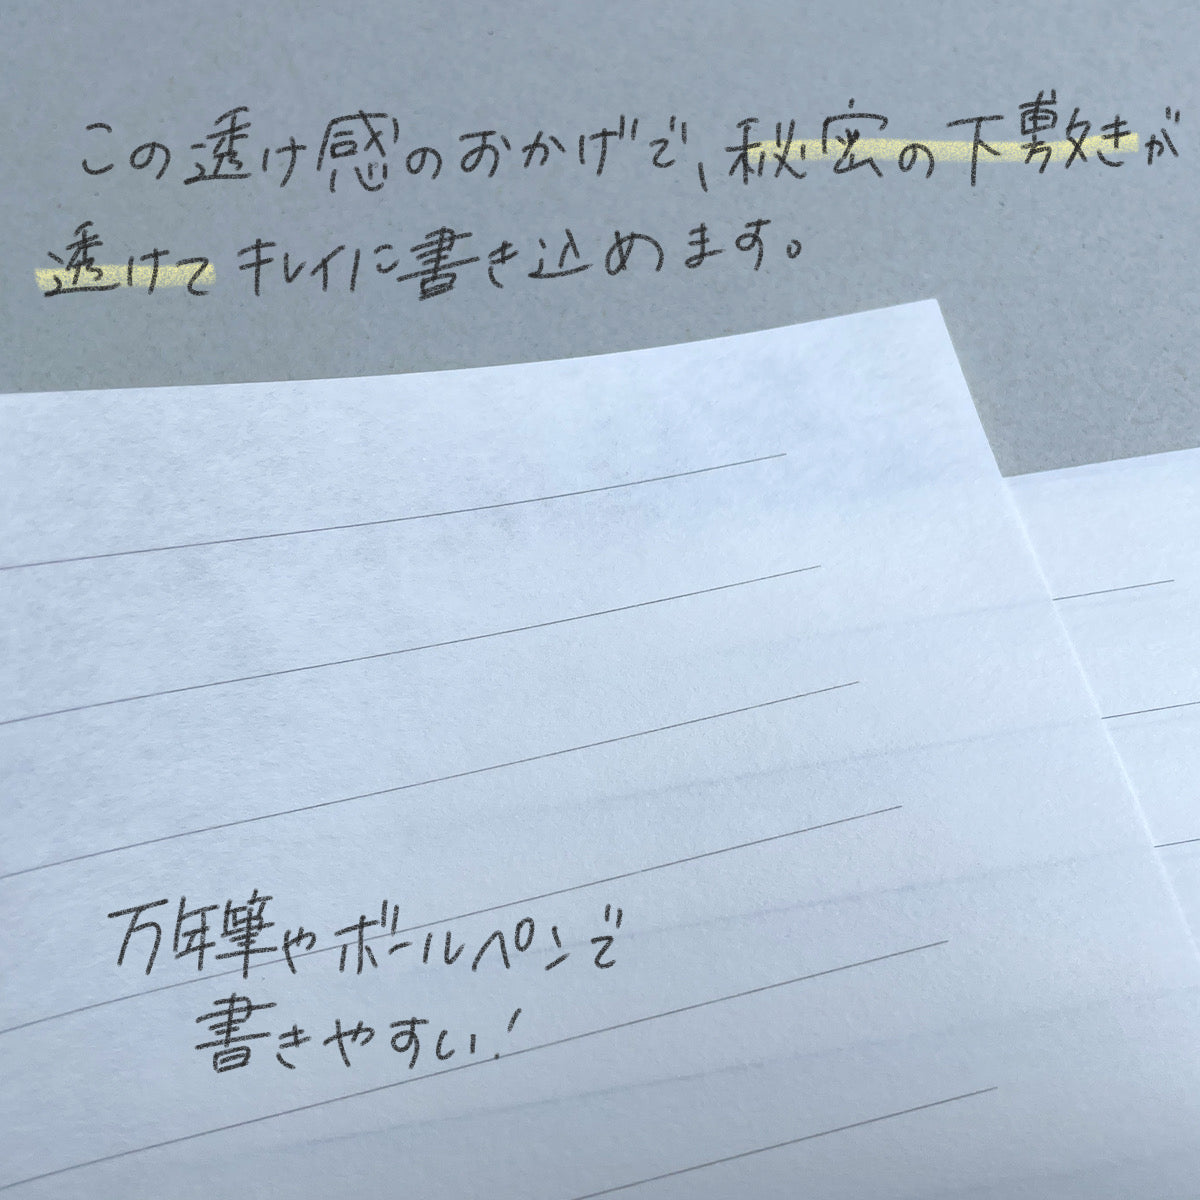 この透け感のおかげで、秘密の下敷きが
透けてキレイに書き込めます。
万年筆やボールペンで
書きやすい!